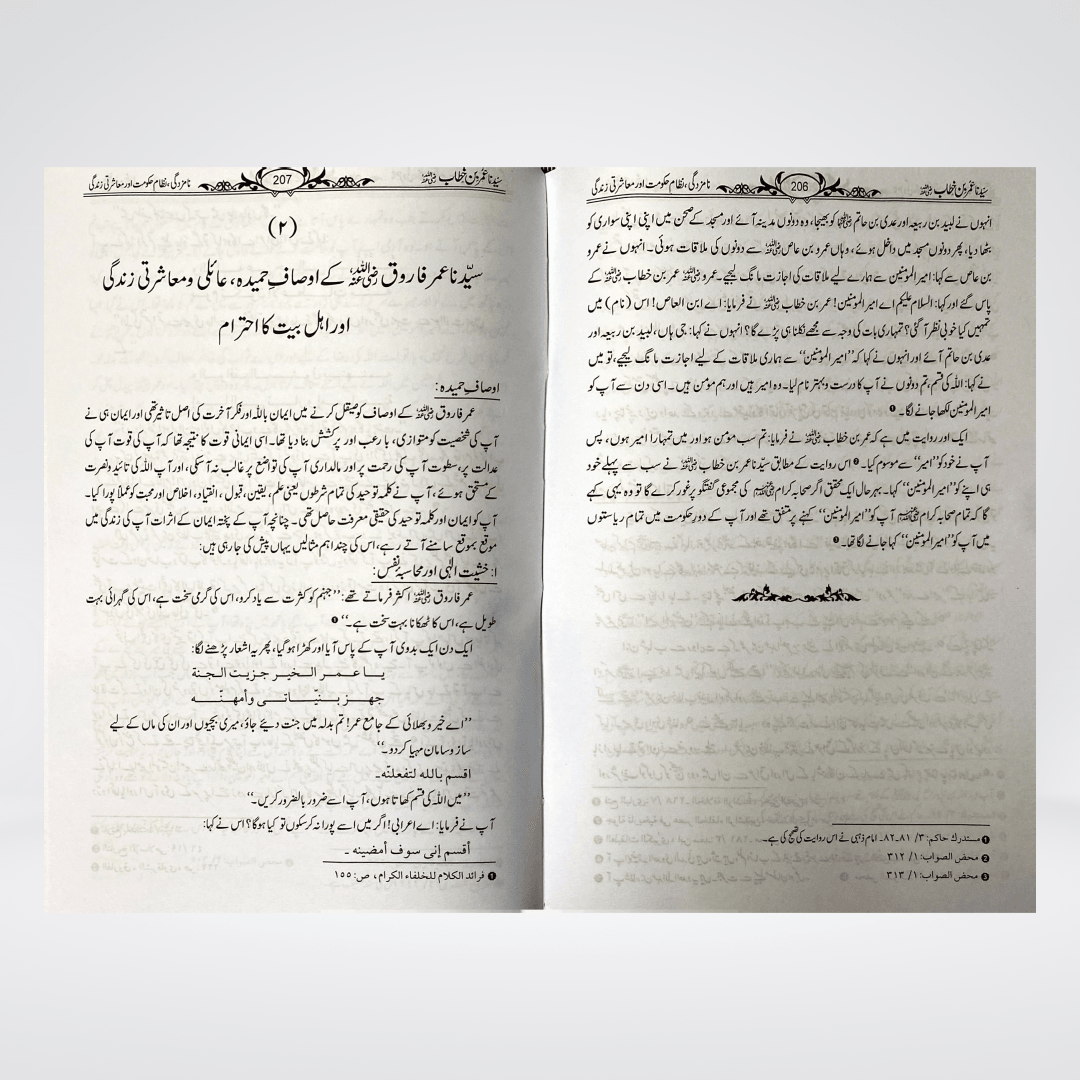 سیّدنا عمر بن خطاب رضی اللہ عنہ 206 نامزدگی، نظام حکومت اور معاشرتی زندگی
انہوں نے لبید بن ربیعہ اور عدی بن حاتم رضی اللہ عنہما کو بھیجا، وہ دونوں مدینہ آئے اور مسجد کے صحن میں اپنی اپنی سواری کو
بٹھا دیا، پھر دونوں مسجد میں داخل ہوئے، وہاں عمرو بن عاص رضی اللہ عنہ سے دونوں کی ملاقات ہوئی۔ انہوں نے عمرو
بن عاص سے کہا: امیر المؤمنین سے ہمارے لیے ملاقات کی اجازت مانگ لیجیے۔ عمرو رضی اللہ عنہ عمر بن خطاب رضی اللہ عنہ کے
پاس گئے اور کہا: السلام علیکم اے امیر المؤمنین! عمر بن خطاب رضی اللہ عنہ نے فرمایا: اے ابن العاص! اس (نام) میں
تمہیں کیا خوبی نظر آ گئی؟ تمہاری بات کی وجہ سے مجھے نکلنا ہی پڑے گا؟ انہوں نے کہا: جی ہاں، لبید بن ربیعہ اور
عدی بن حاتم آئے اور انہوں نے کہا کہ ’’امیر المؤمنین‘‘ سے ہماری ملاقات کے لیے اجازت مانگ لیجیے، تو میں
نے کہا: اللہ کی قسم، تم دونوں نے آپ کا درست و بہتر نام لیا۔ وہ امیر ہیں اور ہم مؤمن ہیں۔ اسی دن سے آپ کو
امیر المؤمنین لکھا جانے لگا۔ ❶
ایک اور روایت میں ہے کہ عمر بن خطاب رضی اللہ عنہ نے فرمایا: تم سب مومن ہو اور میں تمہارا امیر ہوں، پس
آپ نے خود کو ’’امیر‘‘ سے موسوم کیا۔ ❷ اس روایت کے مطابق سیّدنا عمر بن خطاب رضی اللہ عنہ نے سب سے پہلے خود
ہی اپنے کو ’’امیر المؤمنین‘‘ کہا۔ بہرحال ایک محقق اگر صحابہ کرام رضی اللہ عنہم کی مجموعی گفتگو پر غور کرے گا تو وہ یہی کہے
گا کہ تمام صحابہ کرام رضی اللہ عنہم آپ کو ’’امیر المؤمنین‘‘ کہنے پر متفق تھے اور آپ کے دور حکومت میں تمام ریاستوں
میں آپ کو ’’امیر المؤمنین‘‘ کہا جانے لگا تھا۔ ❸
❶ مستدرك حاكم: ۳/ ۸۱-۸۲۔ امام ذہبی نے اس روایت کی تصحیح کی ہے۔
❷ محض الصواب: ۱/ ۳۱۲
❸ محض الصواب: ۱/ ۳۱۳
سیّدنا عمر بن خطاب رضی اللہ عنہ 207 نامزدگی، نظام حکومت اور معاشرتی زندگی
(۲)
سیّدنا عمر فاروق رضی اللہ عنہ کے اوصافِ حمیدہ، عائلی و معاشرتی زندگی
اور اہل بیت کا احترام
اوصافِ حمیدہ:
عمر فاروق رضی اللہ عنہ کے اوصاف کو صیقل کرنے میں ایمان باللہ اور فکر آخرت کی اصل تاثیر تھی اور ایمان ہی نے
آپ کی شخصیت کو متوازی، بارعب اور پرکشش بنا دیا تھا۔ اسی ایمانی قوت کا نتیجہ تھا کہ آپ کی قوت آپ کی
عدالت پر، سطوت آپ کی رحمت پر اور مالداری آپ کی تواضع پر غالب نہ آ سکی، اور آپ اللہ کی تائید و نصرت
کے مستحق ہوئے، آپ نے کلمہ توحید کی تمام شرطوں یعنی علم، یقین، قبول، انقیاد، اخلاص اور محبت کو عملاً پورا کیا۔
آپ کو ایمان اور کلمہ توحید کی حقیقی معرفت حاصل تھی۔ چنانچہ آپ کے پختہ ایمان کے اثرات آپ کی زندگی میں
موقع بموقع سامنے آتے رہے، اس کی چند اہم مثالیں یہاں پیش کی جا رہی ہیں:
ا: خشیت الٰہی اور محاسبہ نفس:
عمر فاروق رضی اللہ عنہ اکثر فرماتے تھے: ’’جہنم کو کثرت سے یاد کرو، اس کی گرمی سخت ہے، اس کی گہرائی بہت
طویل ہے، اس کا ٹھکانا بہت سخت ہے۔‘‘ ❶
ایک دن ایک بدوی آپ کے پاس آیا اور کھڑا ہو گیا، پھر یہ اشعار پڑھنے لگا:
یا عمر الخیر جزیت الجنة
جهز بنیّاتی وأمهنّه
’’اے خیر و بھلائی کے جامع عمر! تم بدلہ میں جنت دیئے جاؤ، میری بچیوں اور ان کی ماں کے لیے
ساز و سامان مہیا کر دو۔‘‘
اقسم بالله لتفعلنّه۔
’’میں اللہ کی قسم کھاتا ہوں، آپ اسے ضرور بالضرور کریں۔‘‘
آپ نے فرمایا: اے اعرابی! اگر میں اسے پورا نہ کر سکوں تو کیا ہوگا؟ اس نے کہا:
أقسم إنی سوف أمضینه ۔
❶ فرائد الكلام للخلفاء الكرام ، ص: ۱۵۵